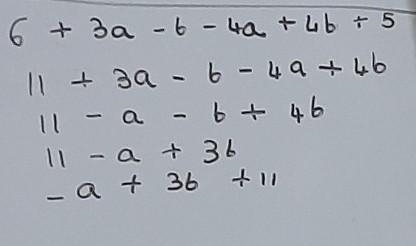 6 + 3a - b - 4a + 4b + 5
11 + 3a - b - 4a + 4b
11 - a - b + 4b
11 - a + 3b
- a + 3b + 11